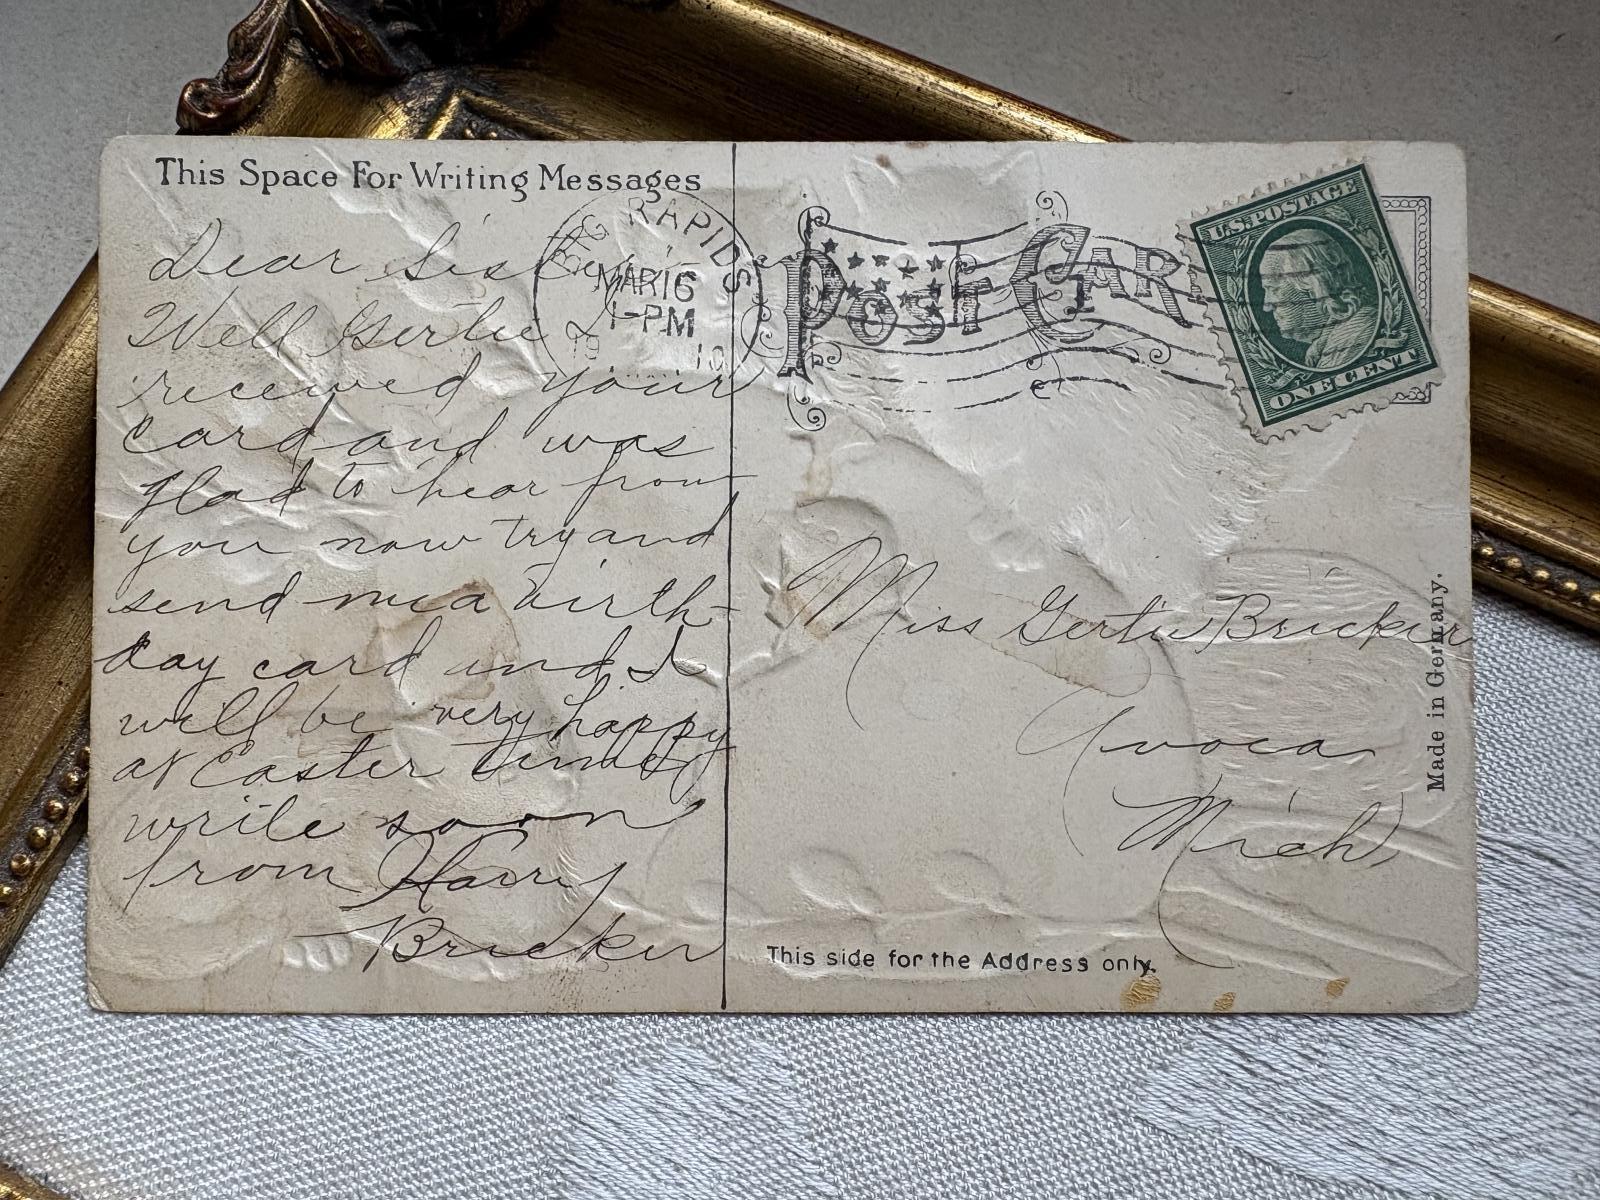 This Space For Writing Messages
Dear Sister
Well Gertie I
received your
card and was
glad to hear from
you now try and
send me a birth-
day card and I
will be very happy
at Easter time
write soon
from Harry
Bricker
BIG RAPIDS
MAR 16
1-PM
19 10
POST CARD
U.S. POSTAGE
ONE CENT
Miss Gertie Bricker
Avoca
Mich
Made in Germany.
This side for the Address only.